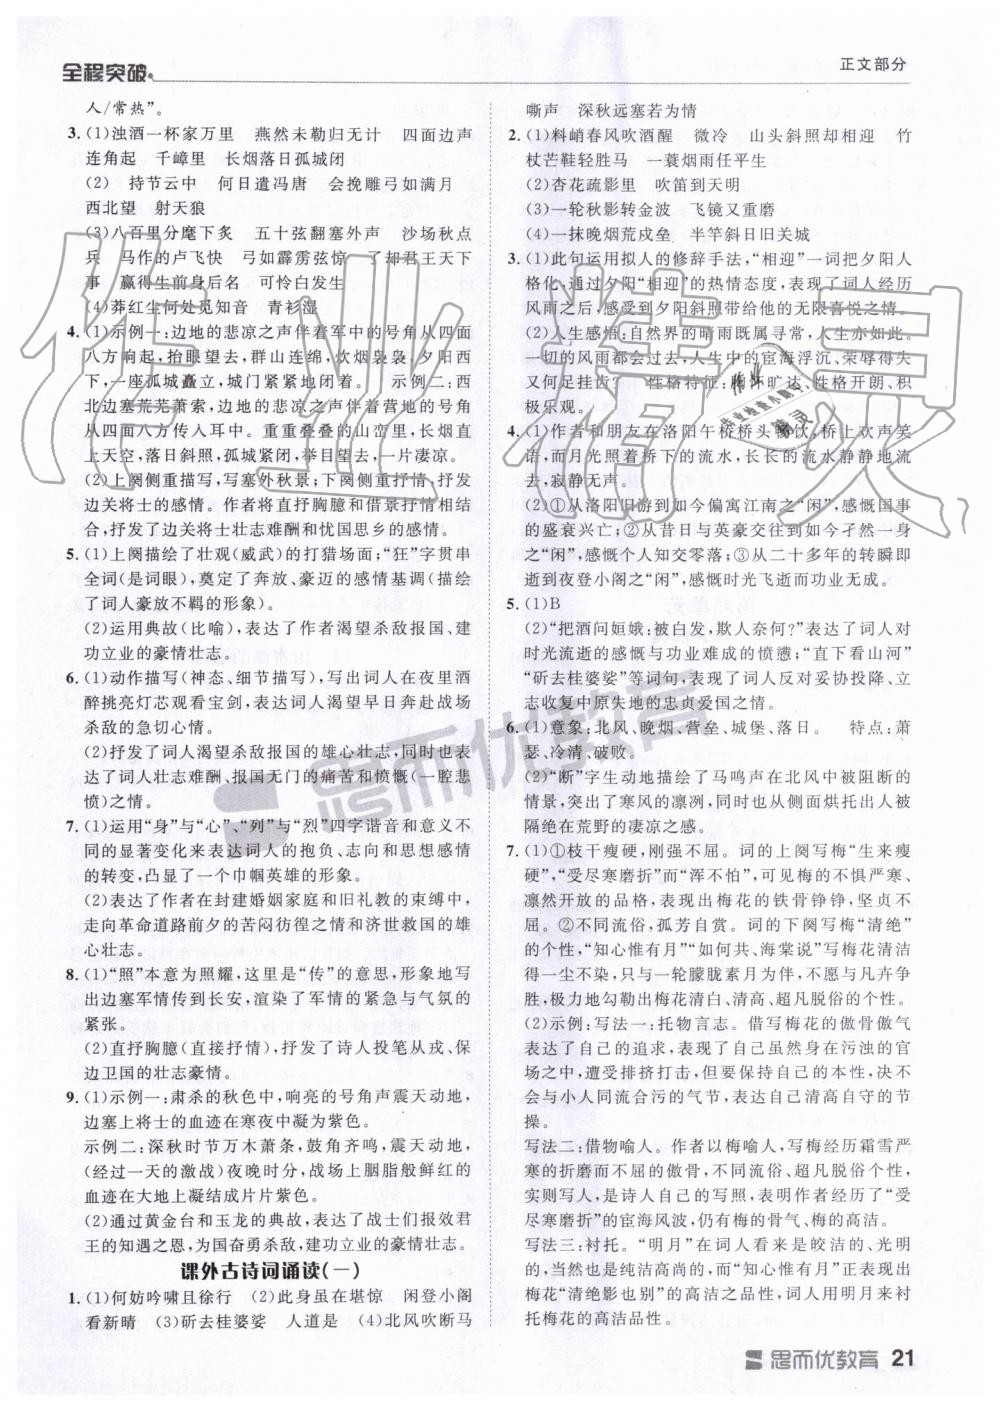 全程突破
正文部分
人/常热”。
3. (1)浊酒一杯家万里　燕然未勒归无计　四面边声
连角起　千嶂里　长烟落日孤城闭
(2)　持节云中　何日遣冯唐　会挽雕弓如满月
西北望　射天狼
(3)八百里分麾下炙　五十弦翻塞外声　沙场秋点
兵　马作的卢飞快　弓如霹雳弦惊　了却君王天下
事　赢得生前身后名　可怜白发生
(4)莽红尘何处觅知音　青衫湿
4. (1)示例一:边地的悲凉之声伴着军中的号角从四面
八方响起,抬眼望去,群山连绵,炊烟袅袅,夕阳西
下,一座孤城矗立,城门紧紧地闭着。　示例二:西
北边塞荒芜萧索,边地的悲凉之声伴着营地的号角
从四面八方传人耳中。重重叠叠的山峦里,长烟直
上云天,落日斜照,孤城紧闭,举目望去,一片凄凉。
(2)上阕侧重描写,写塞外秋景;下阕侧重抒情,抒发
边关将士的感情。作者将直抒胸臆和借景抒情相结
合,抒发了边关将士壮志难酬和忧国思乡的感情。
5. (1)上阕描绘了壮观(威武)的打猎场面;“狂”字贯串
全词(是词眼),奠定了奔放、豪迈的感情基调(描绘
了词人豪放不羁的形象)。
(2)运用典故(比喻),表达了作者渴望杀敌报国、
建功立业的豪情壮志。
6. (1)动作描写(神态、细节描写),写出词人在夜里酒
醉挑亮灯芯观看宝剑,表达了词人渴望早日奔赴战场
杀敌的急切心情。
(2)抒发了词人渴望杀敌报国的雄心壮志,同时也表
达了词人壮志难酬、报国无门的痛苦和愤慨(一腔悲
愤)之情。
7. (1)运用“身”与“心”、“列”与“烈”四字谐音和意义不
同的显著变化来表达词人的抱负、志向和思想感情
的转变,凸显了一个巾帼英雄的形象。
(2)表达了作者在封建婚姻家庭和旧礼教的束缚中,
走向革命道路前夕的苦闷彷徨之情和济世救国的雄
心壮志。
8. (1)“照”本意为照耀,这里是“传”的意思,形象地写
出边塞军情传到长安,渲染了军情的紧急与气氛的
紧张。
(2)直抒胸臆(直接抒情),抒发了诗人投笔从戎、保
边卫国的壮志豪情。
9. (1)示例一:肃杀的秋色中,响亮的号角声震天动地,
边塞上将士的血迹在寒夜中凝为紫色。
示例二:深秋时节万木萧条,鼓角齐鸣,震天动地,
(经过一天的激战)夜晚时分,战场上胭脂般鲜红的
血迹在大地上凝结成片片紫色。
(2)通过黄金台和玉龙的典故,表达了战士们报效君
王的知遇之恩、为国奋勇杀敌、建功立业的豪情壮志。
课外古诗词诵读(一)
1. (1)何妨吟啸且徐行　(2)此身虽在堪惊　闲登小阁
看新晴　(3)斫去桂婆娑　人道是　(4)北风吹断马
嘶声　深秋远塞若为情
2. (1)料峭春风吹酒醒　微冷　山头斜照却相迎　竹
杖芒鞋轻胜马　一蓑烟雨任平生
(2)杏花疏影里　吹笛到天明
(3)一轮秋影转金波　飞镜又重磨
(4)一抹晚烟荒戍垒　半竿斜日旧关城
3. (1)此句运用拟人的修辞手法,“相迎”一词把夕阳人
格化,通过夕阳“相迎”的热情态度,表现了词人经历
风雨之后,感受到夕阳斜照带给他的无限喜悦之情。
(2)人生感悟:自然界的晴雨既属寻常,人生亦如此。
一切的风雨都会过去,人生中的宦海浮沉、荣辱得失
又何足挂齿?　性格特征:胸怀旷达、性格开朗、积
极乐观。
4. (1)作者和朋友在洛阳午桥桥头畅饮,桥上欢声笑
语,而月光照着桥下的流水,长长的流水静静地流
去,寂静无声。
(2)①从洛阳旧游到如今偏寓江南之“闲”,感慨国事
的盛衰兴亡;②从昔日与英豪交往到如今孑然一身
之“闲”,感慨个人知交零落;③从二十多年的转瞬即
逝到夜登小阁之“闲”,感慨时光飞逝而功业无成。
5. (1)B
(2)“把酒问姮娥:被白发,欺人奈何?”表达了词人对
时光流逝的感慨与功业难成的愤懑;“直下看山河”
“斫去桂婆娑”等词句,表现了词人坚决反对妥协投降、立
志收复中原失地的忠贞爱国之情。
6. (1)意象:北风、晚烟、营垒、城堡、落日。　特点:萧
瑟、冷清、破败。
(2)“断”字生动地描绘了马鸣声在北风中被阻断的
情景,突出了寒风的凛冽,同时也从侧面烘托出人被
隔绝在荒野的凄凉之感。
7. (1)①枝干瘦硬,刚强不屈。词的上阕写梅“生来瘦
硬”,“受尽寒磨折”而“浑不怕”,可见梅的不惧严寒、
凛然开放的品格,表现出梅花的铁骨铮铮,坚贞不
屈。②不同流俗,孤芳自赏。词的下阕写梅“清绝”
的个性,“知心惟有月”“如何共、海棠说”写梅花清洁
得一尘不染,只与一轮朦胧素月为伴,不愿与凡卉争
胜,极力地勾画出梅花清白、清高、超凡脱俗的个性。
(2)示例:写法一:托物言志。借写梅花的傲骨傲气
表达了词人的追求,表现了自己虽然身在污浊的官
场之中,遭受排挤打击,但是自己不改本性,决不会
与小人同流合污的气节,表达自己清高自守的节
操。
写法二:借物喻人。作者以梅喻人,写梅经历霜雪严
寒的折磨而不屈的傲骨,不同流俗,超凡脱俗的个性,
实则写人,是诗人自己的写照,表明作者经历了“受
尽寒磨折”的宦海风波,仍有梅的骨气、梅的高洁。
写法三:衬托。“明月”在词人看来是皎洁的、光明
的,当然也是纯洁高尚的,而“知心惟有月”正表现出
梅花“清绝影也别”的高洁之品性,词人用明月来衬
托梅花的高洁品性。
思而优教育 21
作业精灵
思而优教育